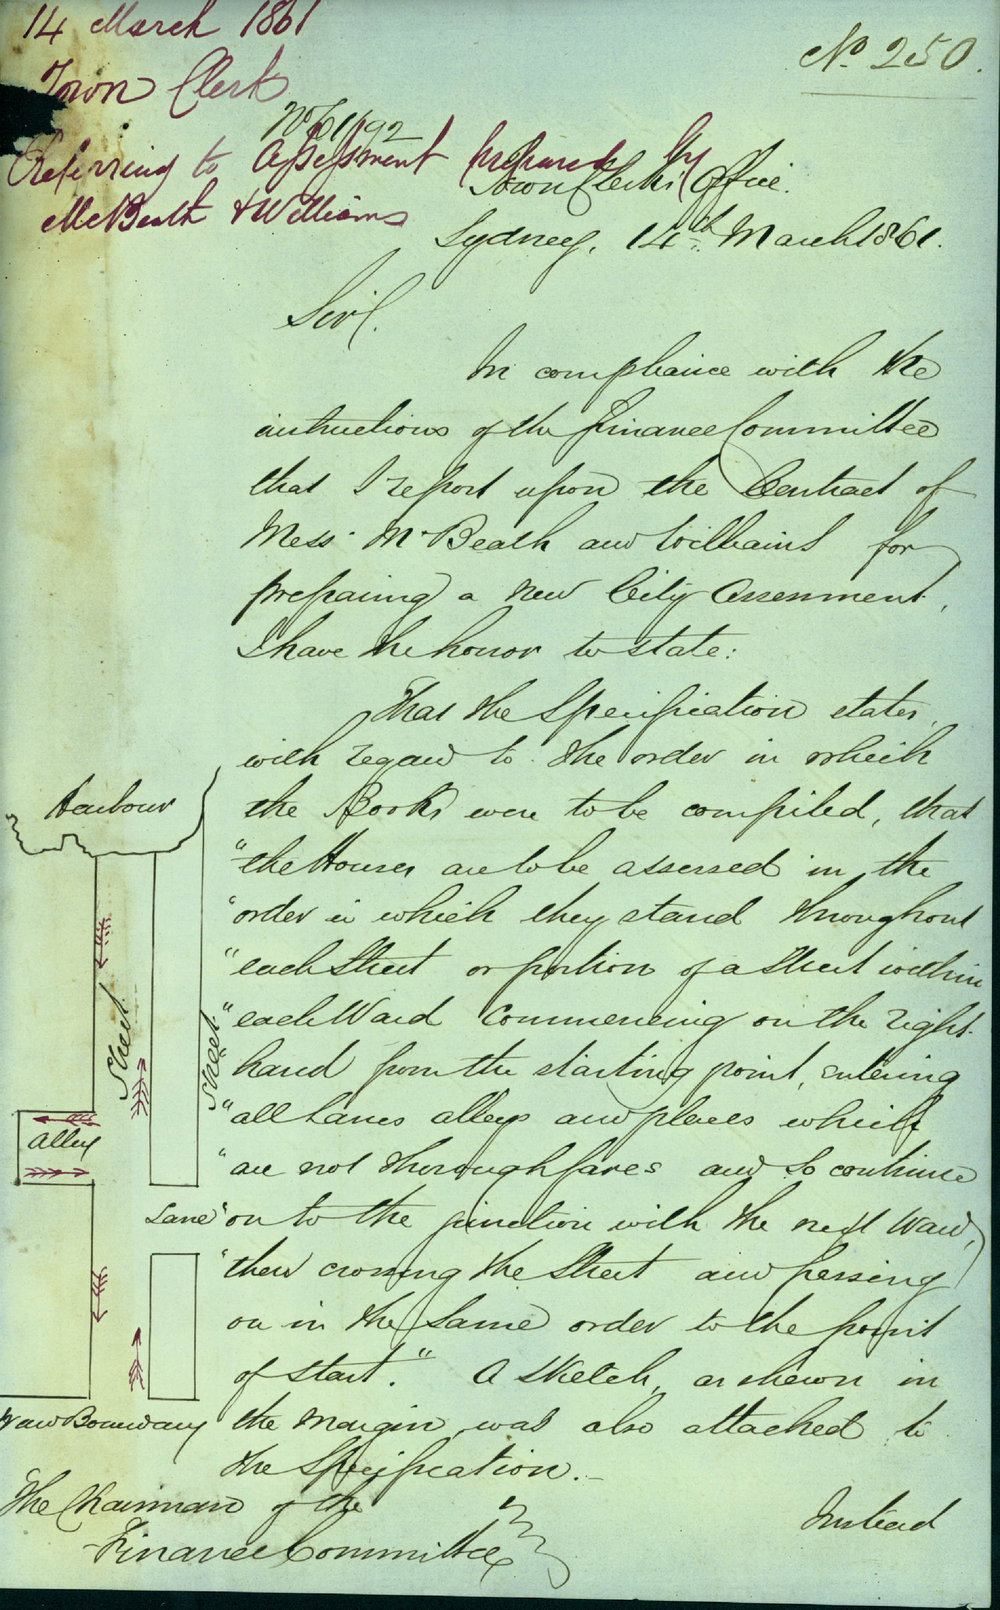 14 March 1861
Town Clerk
No 250.
Referring to Assessment prepared by
McBeath & Williams
Town Clerk's Office.
Sydney, 14th March 1861.
Sir,
In compliance with the
instructions of the Finance Committee
that I report upon the Contract of
Messrs McBeath and Williams for
preparing a new City Assessment,
I have the honor to state:
That the Specification states,
with regard to the order in which
the Books were to be compiled, that
"the Houses are to be assessed in the
"order in which they stand throughout
"each Street or portion of a Street within
"each Ward commencing on the right
"hand from the starting point, entering
"all Lanes alleys and places which
"are not thoroughfares and so continue
"on to the junction with the next Ward,
"then crossing the Street and passing
on in the same order to the point
of start." A sketch, as shewn in
the margin, was also attached to
the Specification.
Harbour
Street
Street
Alley
Lane
Ward Boundary
The Chairman of the
Finance Committee
Instead